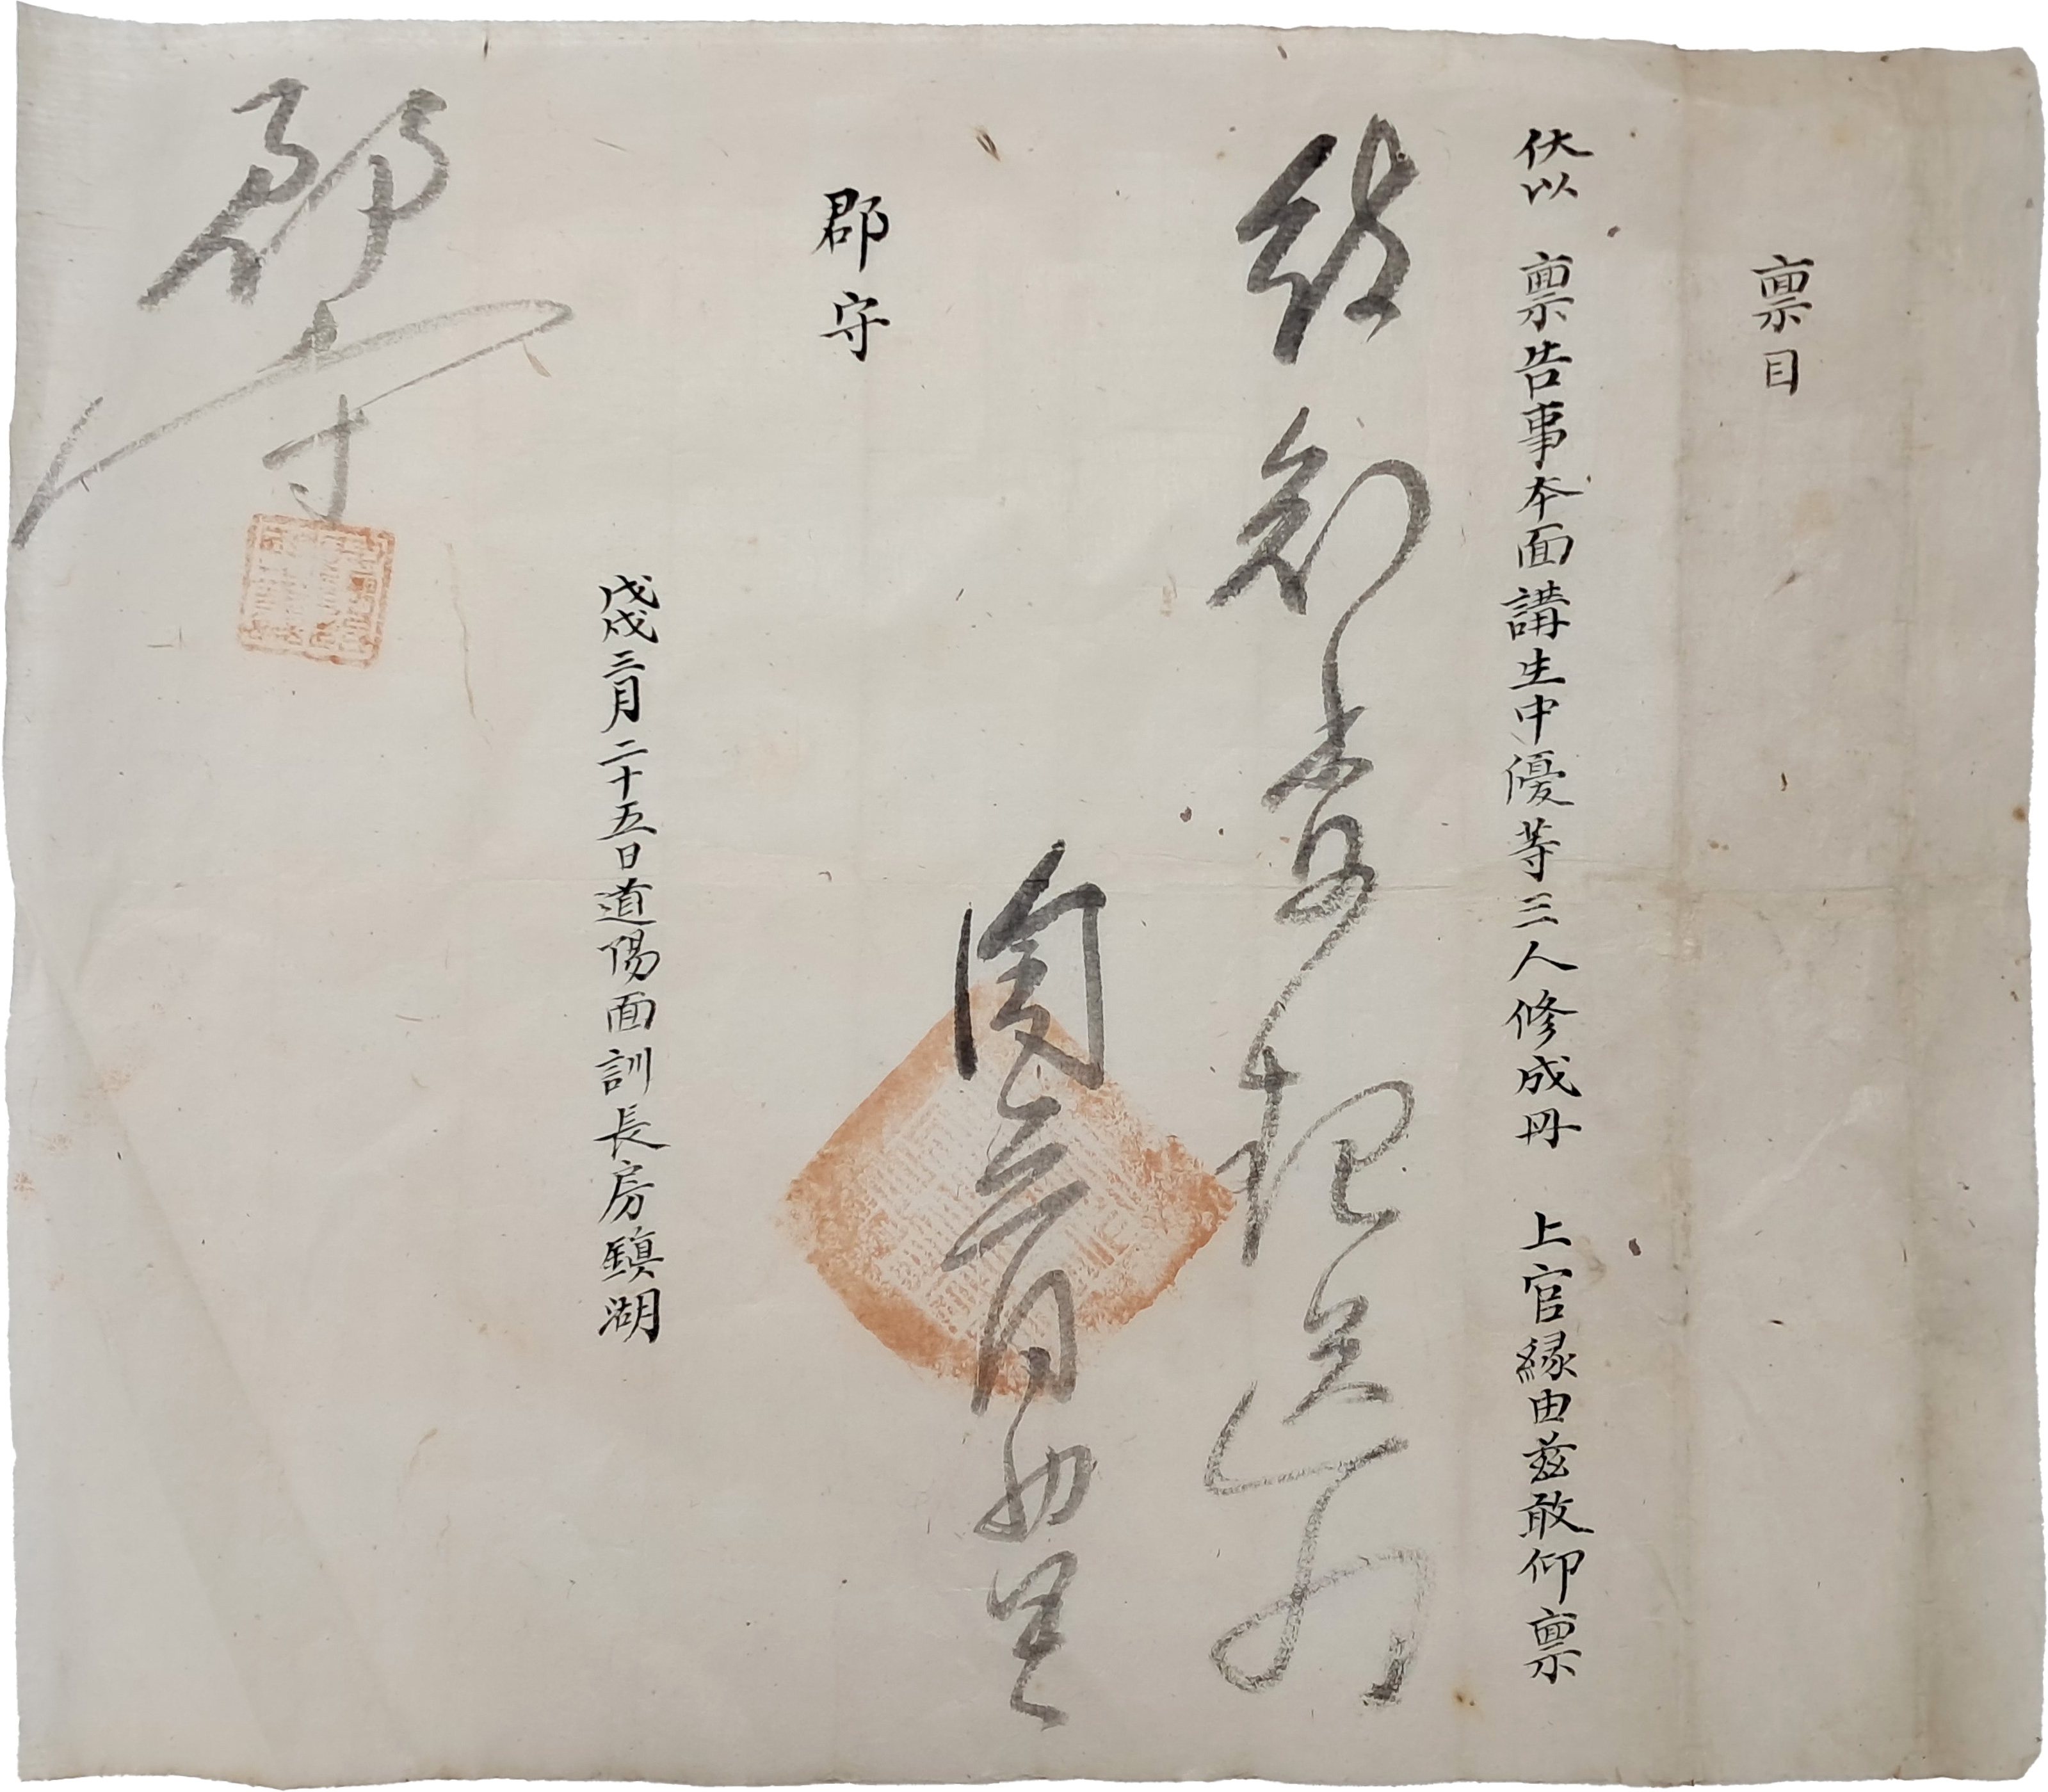 稟目
伏以 稟告事本面講生中優等三人修成冊 上官緣由玆敢仰稟
到 送
閏三月初
郡守
戊戌三月二十五日道陽面訓長房鎮湖
郡守